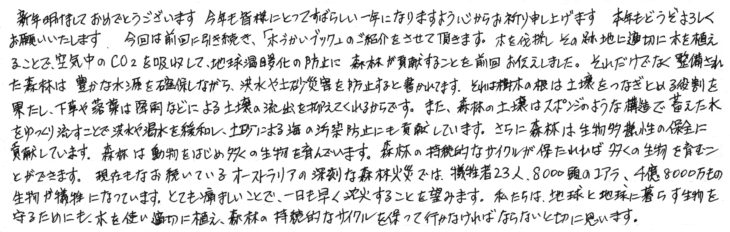 新年明けましておめでとうございます 今年も皆様にとってすばらしい一年になりますよう心からお祈り申し上げます 本年もどうぞよろしく
お願いいたします 今回は前回に引き続き、「木づかいブック」のご紹介をさせて頂きます。木を伐採し その跡地に適切に木を植え
ることで、空気中のCO2を吸収して、地球温暖化の防止に 森林が貢献することを前回お伝えしました。それだけでなく 整備され
た森林は 豊かな水源を確保しながら、洪水や土砂災害を防止すると書かれてます。それは樹木の根は土壌をつなぎとめる役割を
果たし、下草や落葉は降雨などによる土壌の流出を抑えてくれるからです。また、森林の土壌はスポンジのような構造で 蓄えた水
をゆっくり流すことで洪水や渇水を緩和し、土砂による海の汚染防止にも貢献しています。さらに森林は生物多様性の保全に
貢献しています。森林は動物をはじめ多くの生物を育んでいます。森林の持続的なサイクルが保たれれば 多くの生物を育むこ
とができます。現在もなお続いているオーストラリアの深刻な森林火災では、犠牲者23人、8000頭のコアラ、4億8000万もの
生物が犠牲になっています。とても痛ましいことで、一日も早く鎮火することを望みます。私たちは、地球と地球に暮らす生物を
守るためにも、木を使い適切に植え、森林の持続的なサイクルを保って行かなければならないと切に思います。